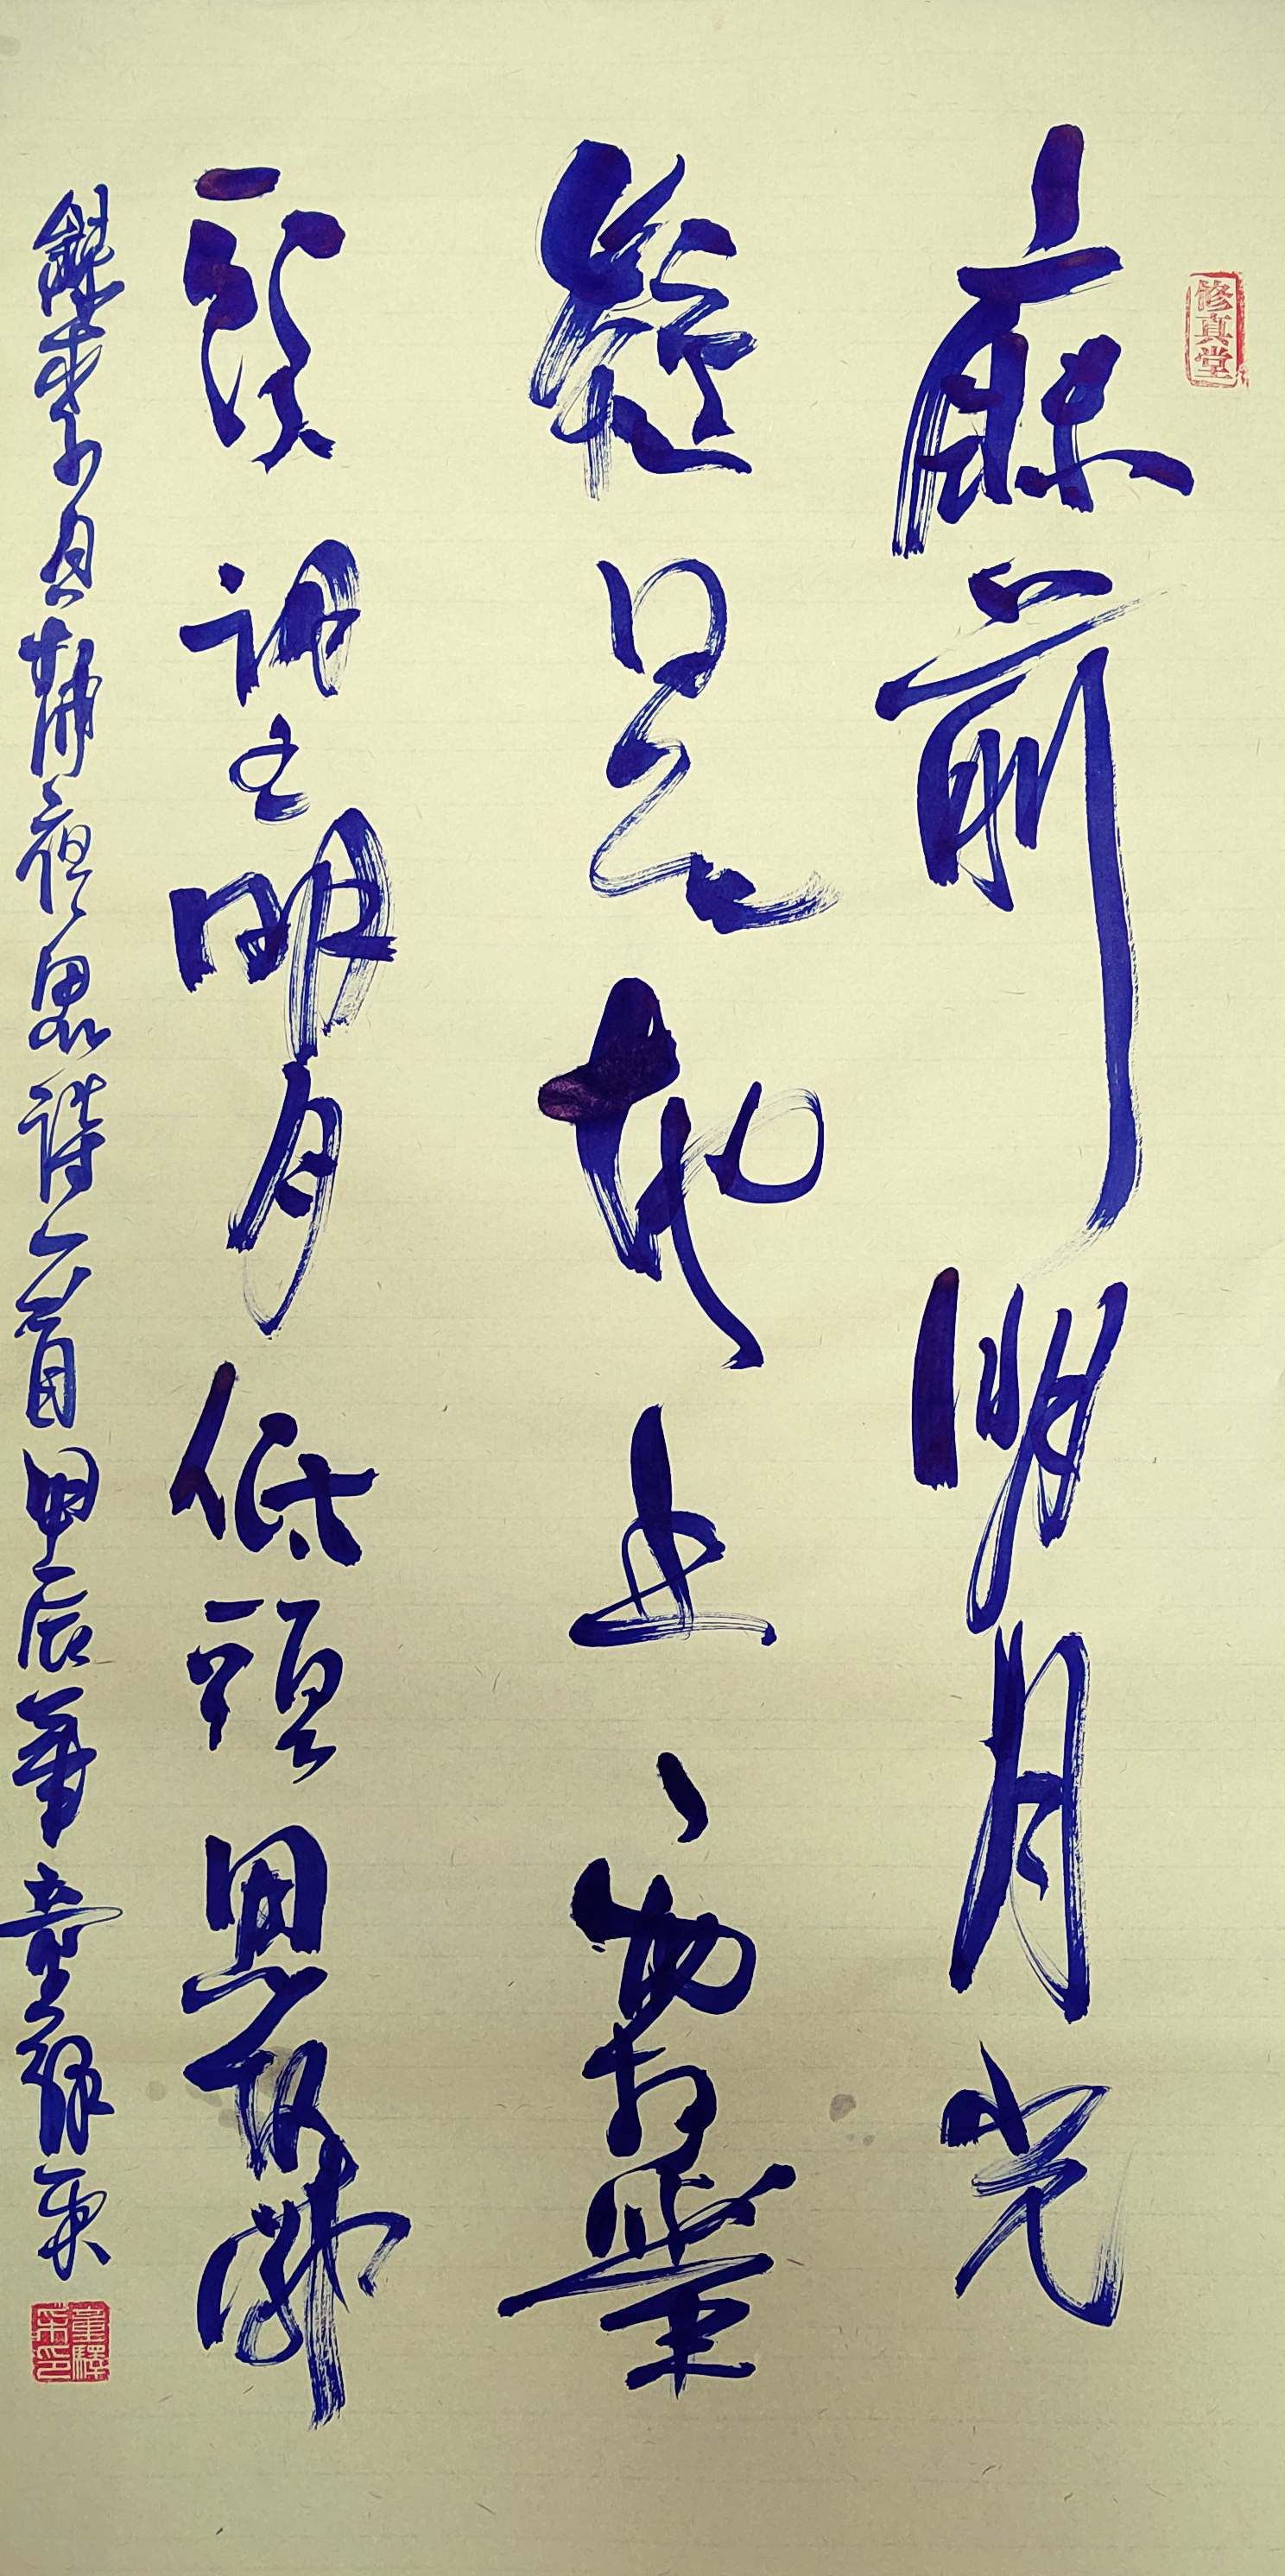 修真堂
床前明月光
疑是地上霜舉
頭望明月低頭思故鄉
錄李白靜夜思詩一首甲辰童驛采
童驛采印